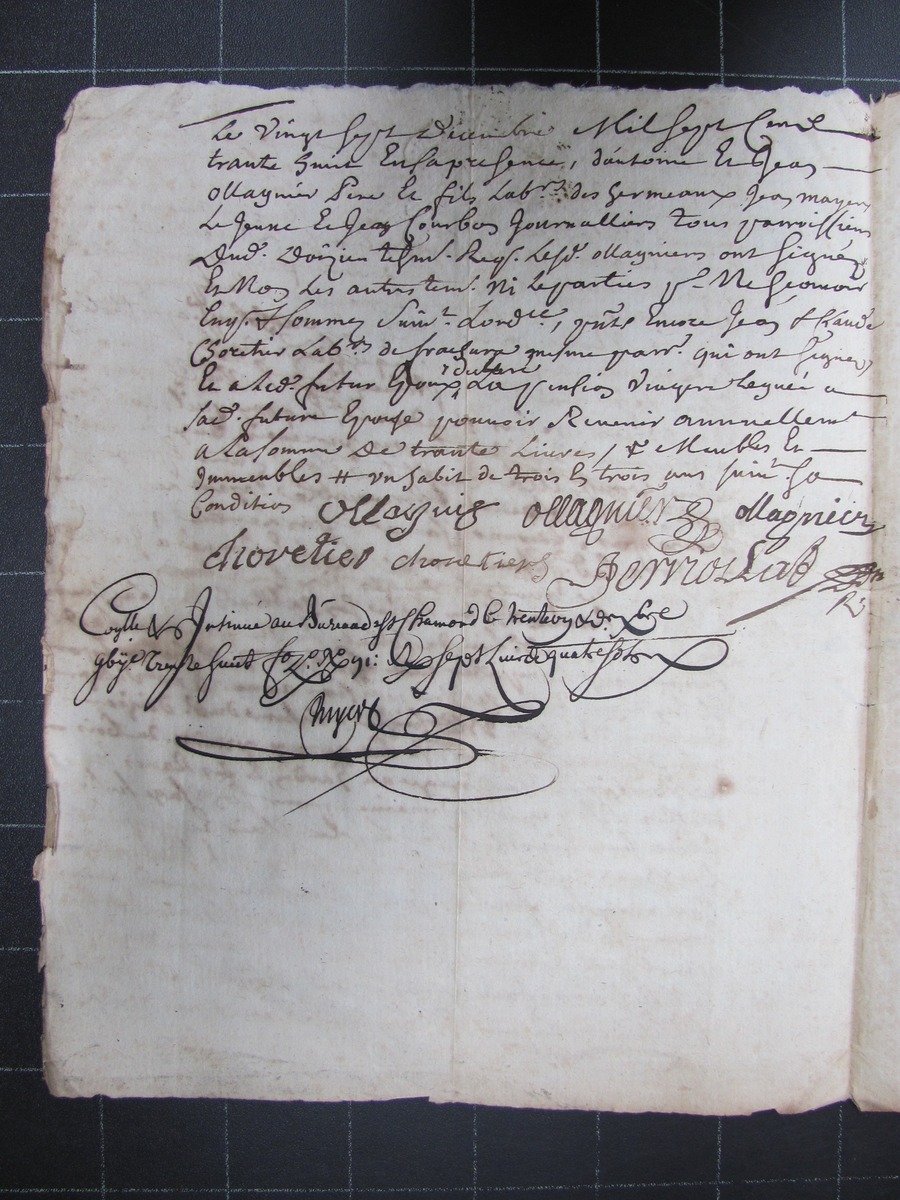 Le vingt sept decembre Mil sept Cent
trante huit En la presence, d'antoine Et Jean
ollagnier Pere Et fils Labrs des hermeaux Jean mayery
Le Jeune Et Jean Courbon Journalliers tous parroissiens
Dud. Doizieu Reqs. Lesd. ollagniers ont signéz
Et Non Les autres tem. Ni Le parties pr. Ne scavoir
Enqs. & sommez suivt. Lordce, Encore Jean & Claude
Choretier Labrs de mesme parr. qui ont signez
Et a led. futur Epoux La pension viagere Leguée a
sad. future Epouse pouvoir Revenir annuellemt
a La somme De trante Livres, & Meubles Et
Immeubles # un habit de trois En trois ans suivt. sa
Condition ollagnier ollagnier ollagnier
chovetier chovetier
Conlle & Insinué au Bureau de st Chamond le trente un xbre
trente huit fo. sept Livres quatre sols